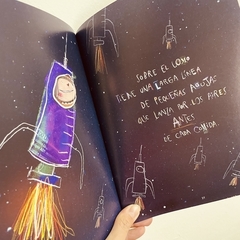 SOBRE EL LOMO
TIENE UNA LARGA LÍNEA
DE PEQUEÑAS AGUJAS
QUE LANZA POR LOS AIRES
ANTES
DE CADA COMIDA.